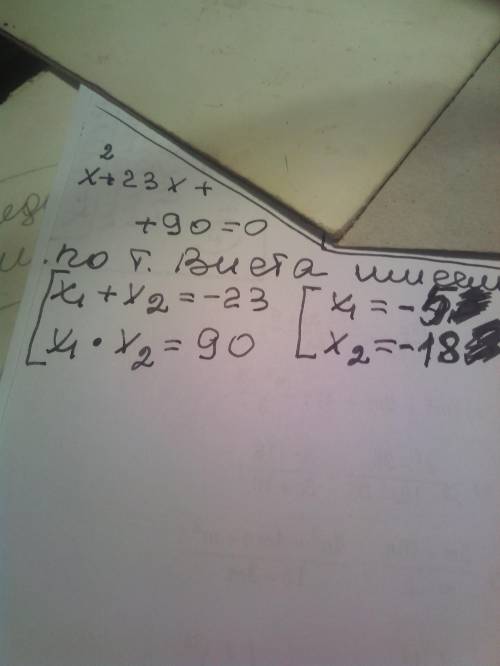 x²+23x+
+90=0
по т. Виета имеем
x₁+x₂=-23
x₁•x₂=90
x₁=-5
x₂=-18